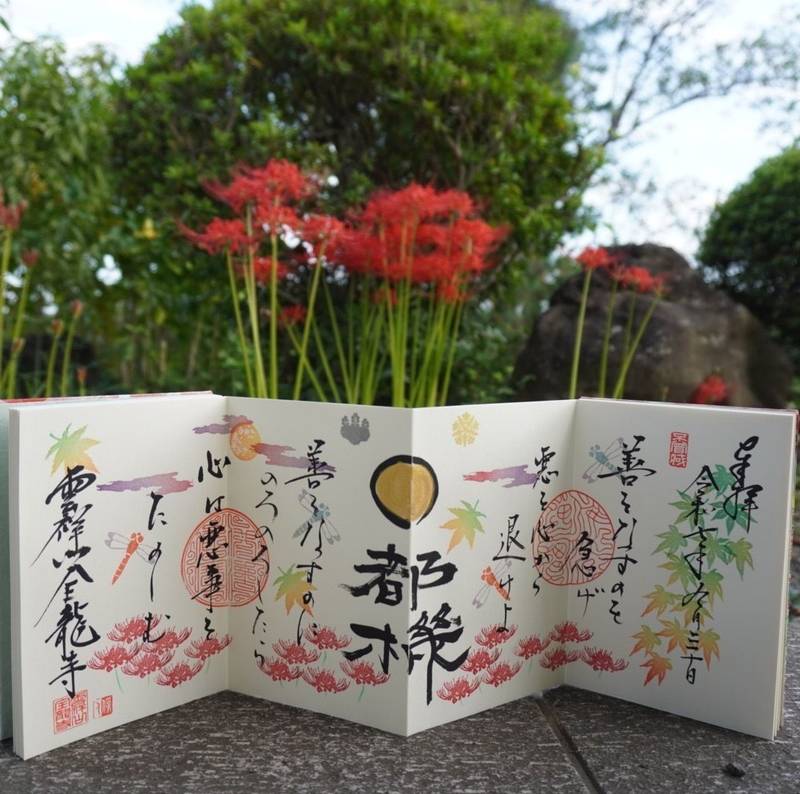 奉拝
令和七年九月三十日
善をなすのを
急げ
悪を心から
退けよ
都機
善をなすのに
のろのろしたら
心は悪事を
たのしむ
雲祥山全龍寺